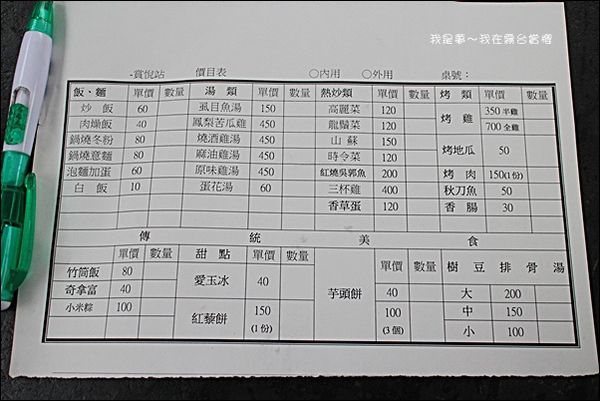 我是事～我在霧台賞櫻
-賞悅站 價目表 ○內用 ○外用 桌號：
飯、麵 單價 數量 湯 類 單價 數量 熱炒類 單價 數量 烤 類 單價 數量
炒 飯 60 虱目魚湯 150 高麗菜 120 烤 雞 350 半雞
肉燥飯 40 鳳梨苦瓜雞 450 龍鬚菜 120 700 全雞
鍋燒冬粉 80 燒酒雞湯 450 山 蘇 150 烤地瓜 50
鍋燒意麵 80 麻油雞湯 450 時令菜 120
泡麵加蛋 60 原味雞湯 450 紅燒吳郭魚 200 烤 肉 150(1份)
白 飯 10 蛋花湯 60 三杯雞 400 秋刀魚 50
香草蛋 120 香 腸 30
傳 統 美 食
單價 數量 甜 點 單價 數量 單價 數量 樹 豆 排 骨 湯
竹筒飯 80 愛玉冰 40 芋頭餅 40 大 200
奇拿富 40 100 中 150
小米粽 100 紅藜餅 150 (3個) 小 100
(1份)